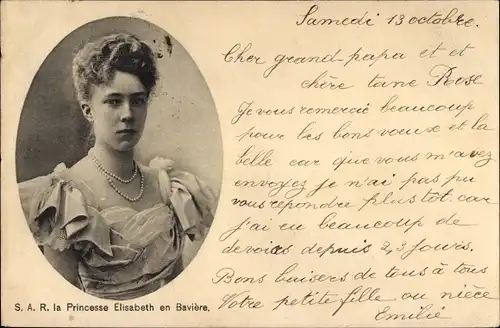 Samedi 13 octobre.
Cher grand-papa et et
chère tane Rose
Je vous remercie beaucoup
pour les bons vœux et la
belle car que vous m'avez
envoyez je n'ai pas pu
vous répondre plus tôt. car
j'ai eu beaucoup de
devoirs depuis 2,3 jours.
Bons baisers de tous à tous
Votre petite fille ou nièce
Emilie
S. A. R. la Princesse Elisabeth en Bavière,